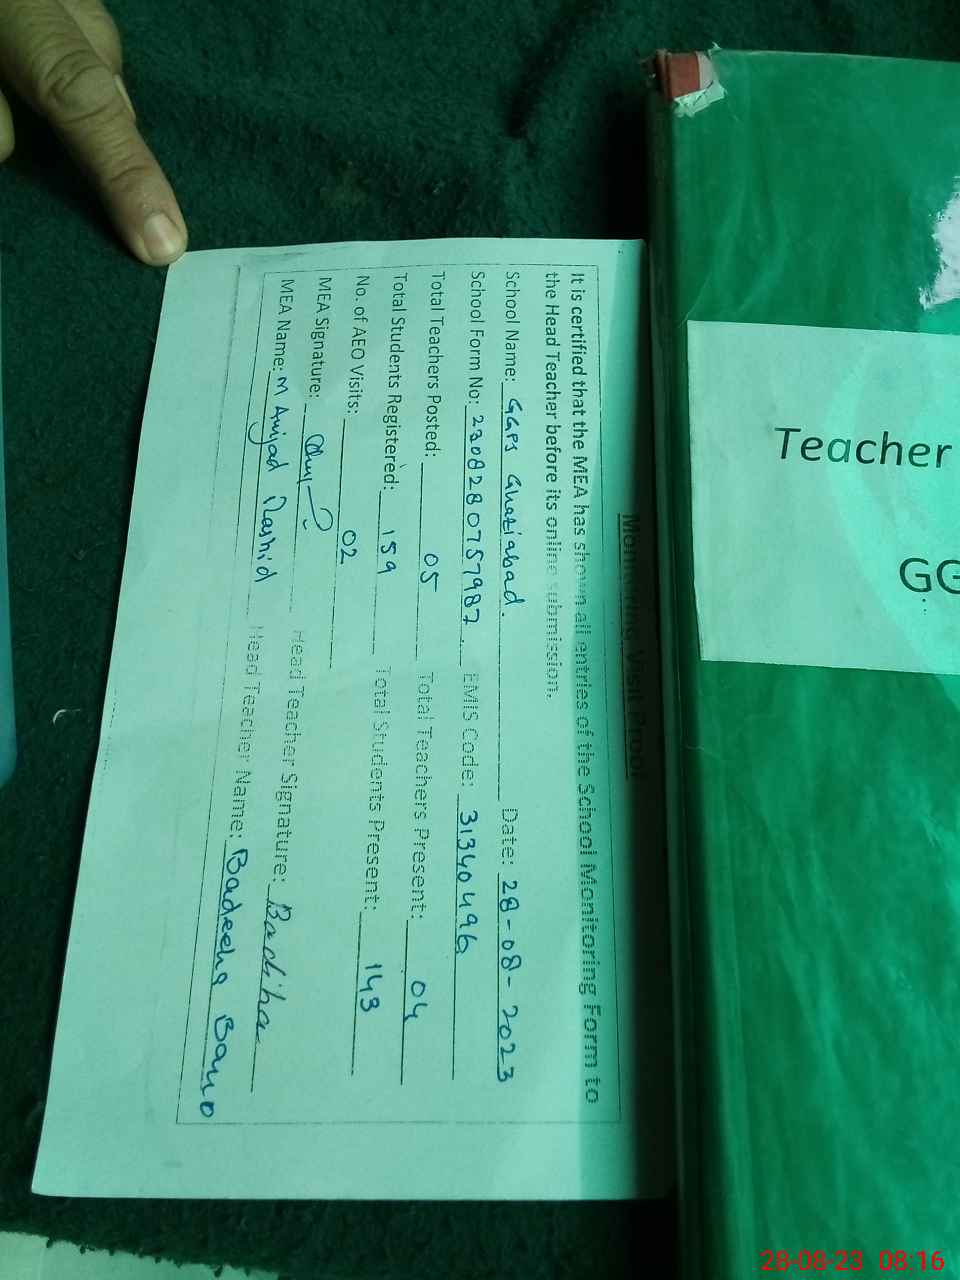 Monitoring Visit Proof
It is certified that the MEA has shown all entries of the School Monitoring Form to
the Head Teacher before its online submission.
School Name: GGPS Ghaziabad. Date: 28-08-2023
School Form No: 2308280757987. EMIS Code: 31340496
Total Teachers Posted: 05 Total Teachers Present: 04
Total Students Registered: 159 Total Students Present: 143
No. of AEO Visits: 02
MEA Signature: Head Teacher Signature: Badiha
MEA Name: M Amjad Rashid Head Teacher Name: Badeeha Bano
Teacher
GG
28-08-23 08:16